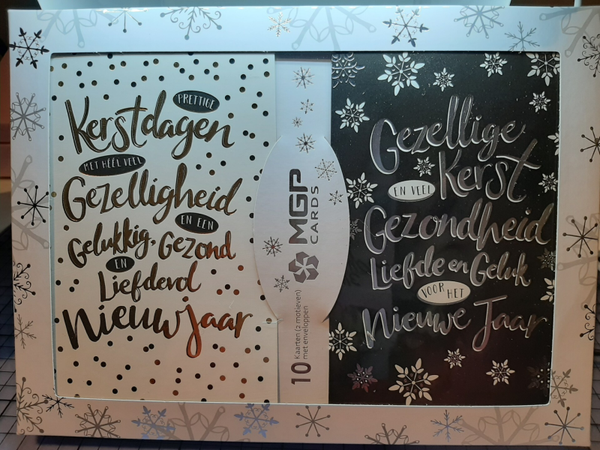 PRETTIGE
Kerstdagen
MET HEEL VEEL
Gezelligheid
EN EEN
Gelukkig, Gezond
EN
Liefdevol
Nieuwjaar
MGP
CARDS
10 Kaarten (2 motieven)
met enveloppen
Gezellige
Kerst
EN VEEL
Gezondheid
Liefde en Geluk
VOOR HET
Nieuwe Jaar